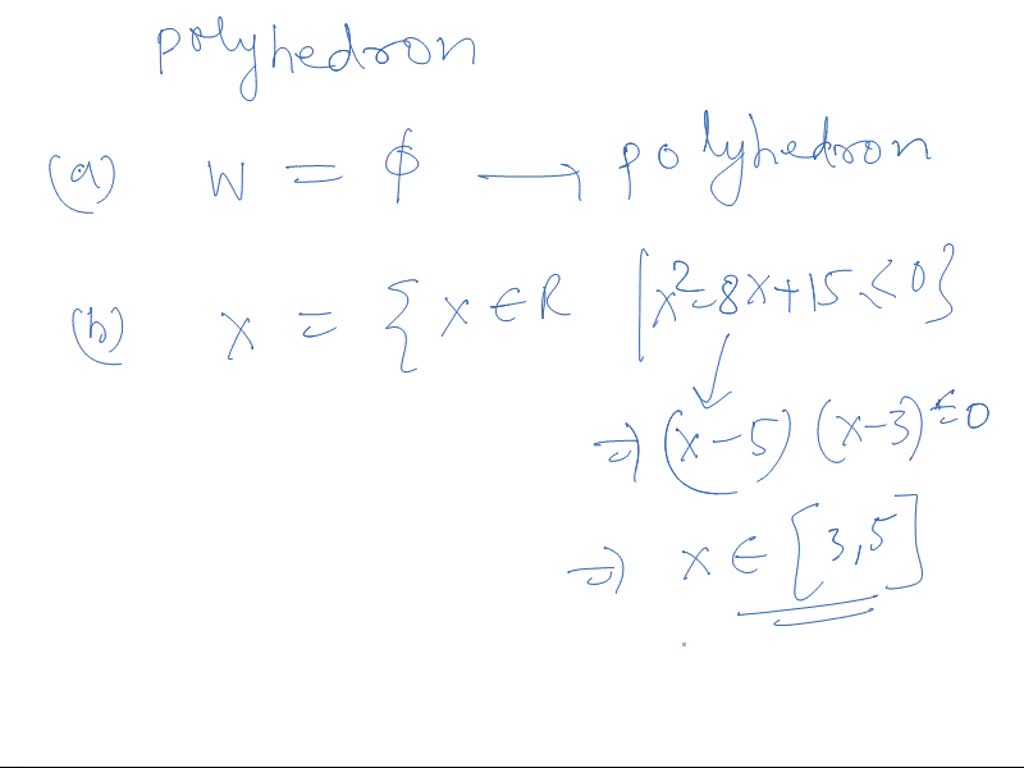 polyhedron
(a) W = ϕ → polyhedron
(b) X = { x ∈ R | x² - 8x + 15 ≤ 0 }
⇒ (x - 5) (x - 3) ≤ 0
⇒ x ∈ [3, 5]